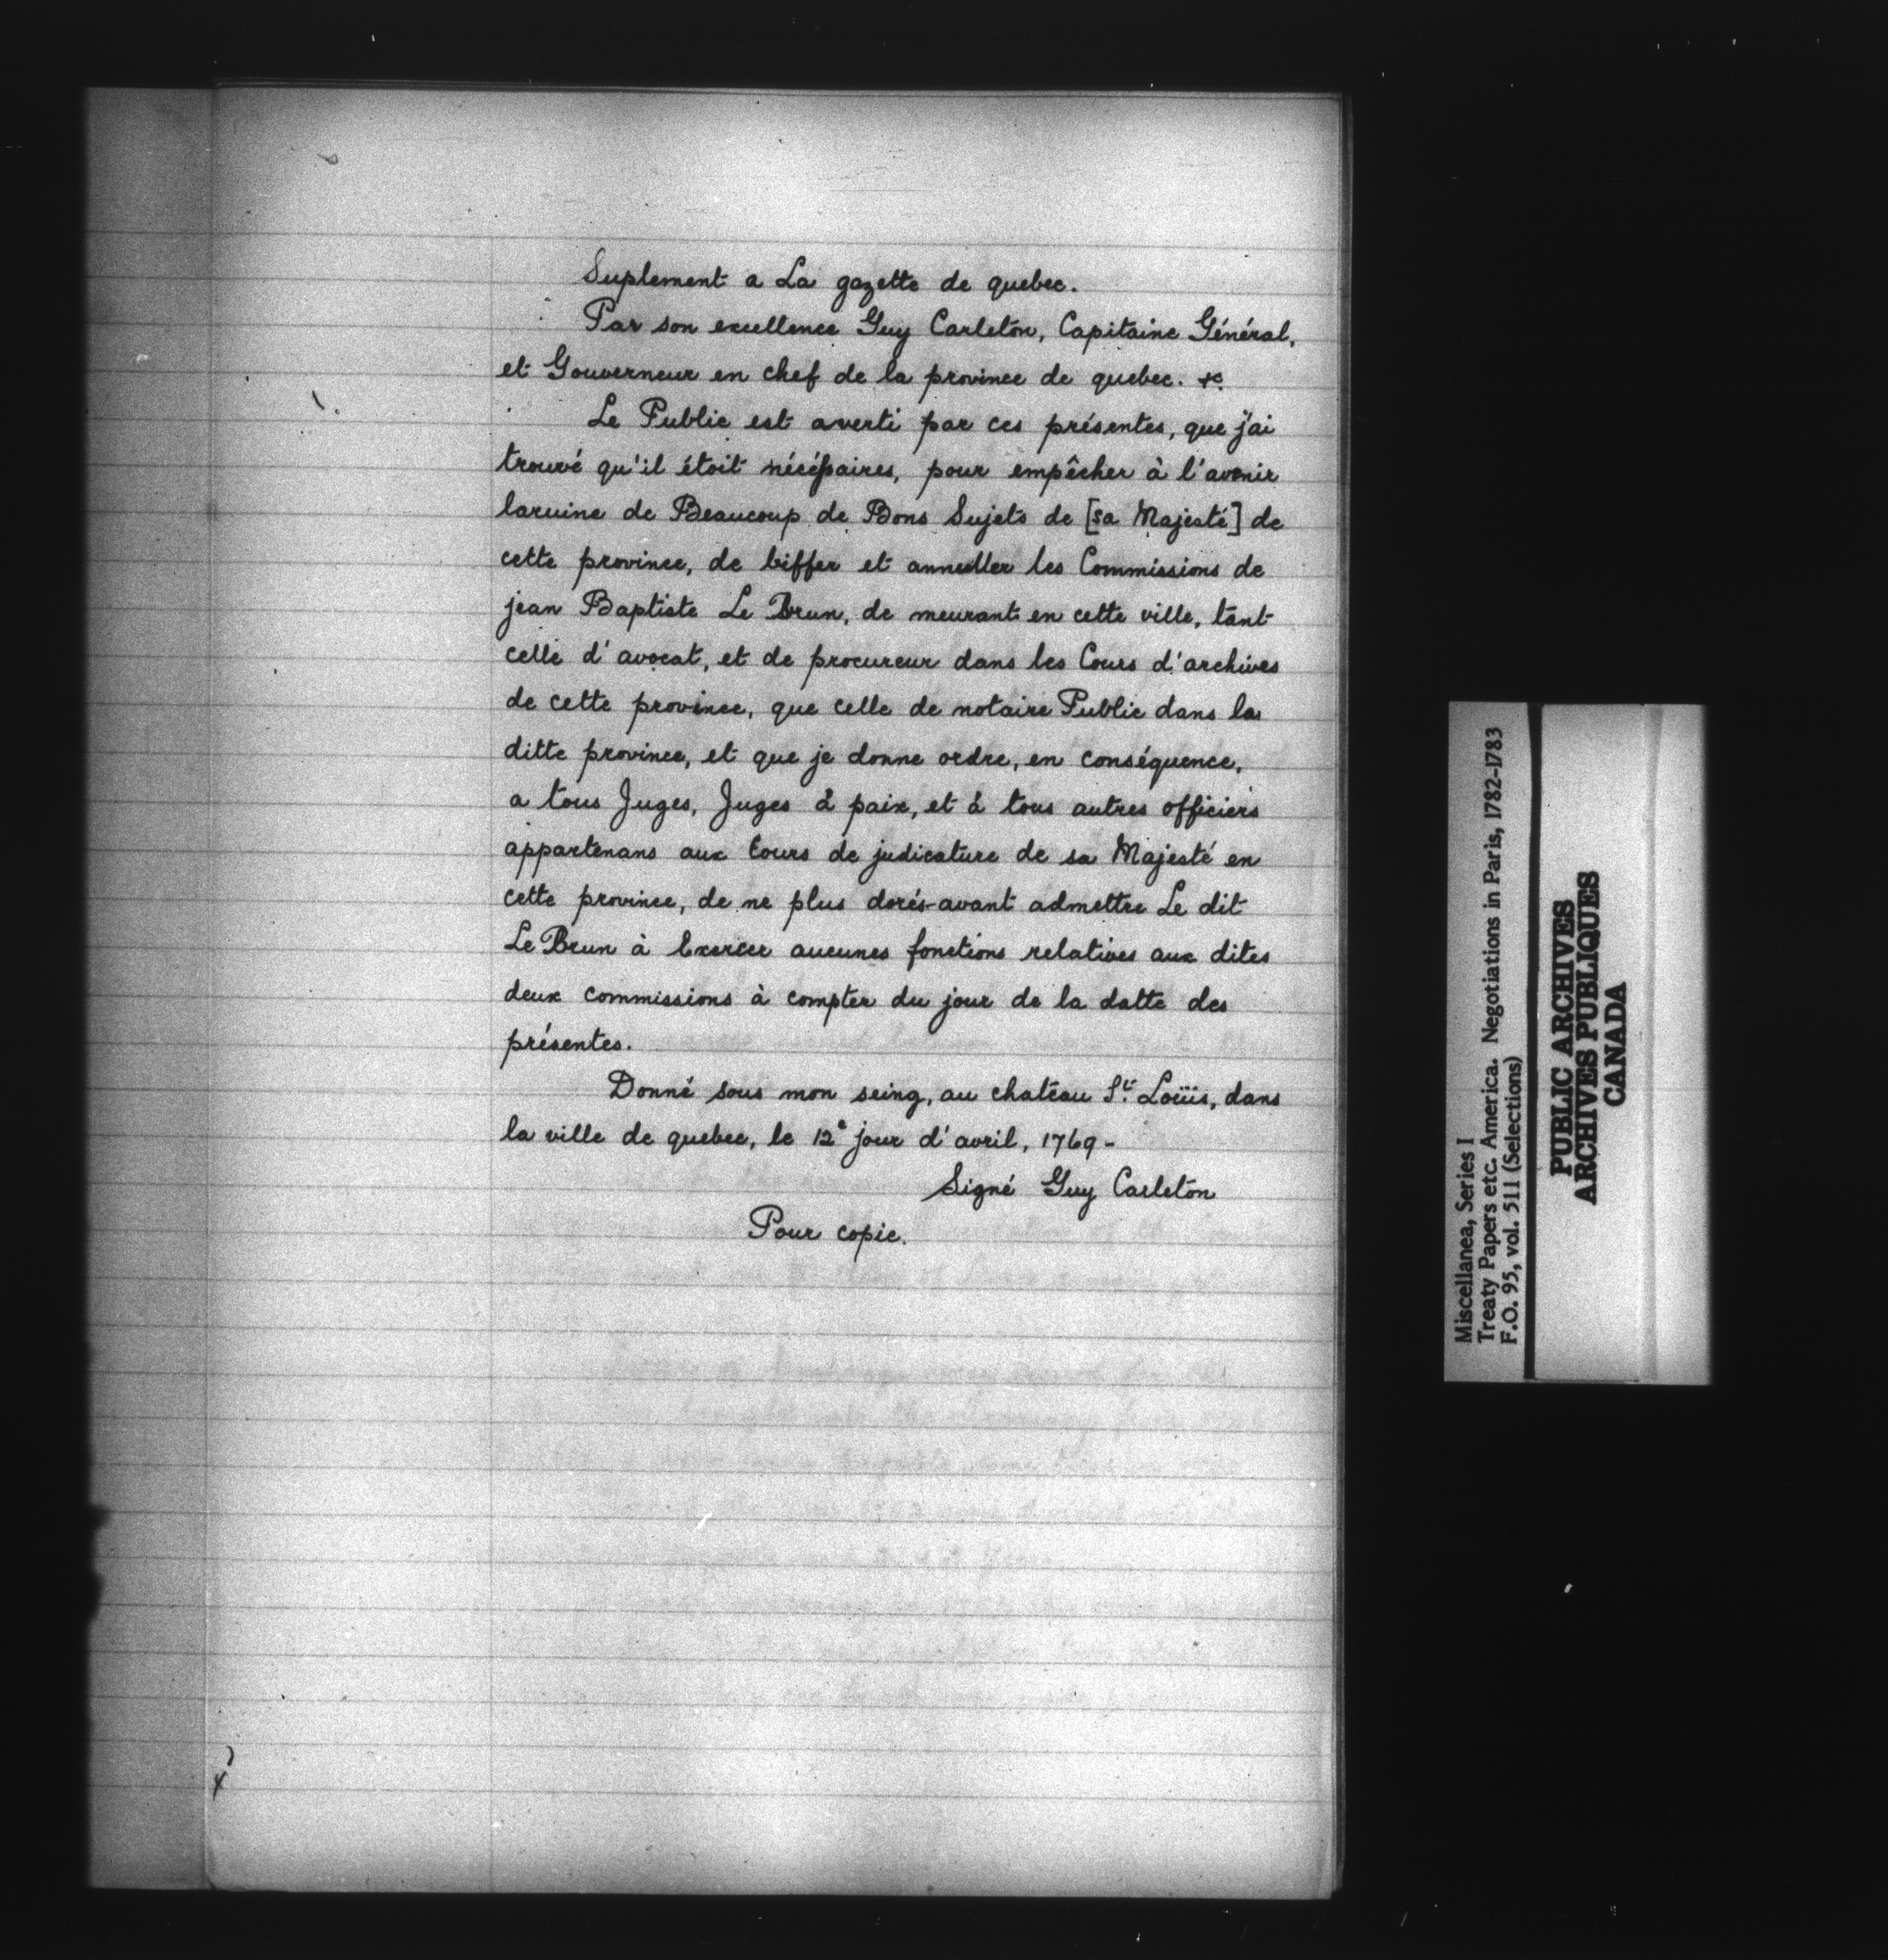 Suplement a La gazette de quebec.
Par son excellence Guy Carleton, Capitaine Général,
et Gouverneur en chef de la province de quebec. &c.
Le Public est averti par ces présentes, que j'ai
trouvé qu'il étoit nécéssaires, pour empêcher à l'avenir
laruine de Beaucoup de Bons Sujets de [sa Majesté] de
cette province, de biffer et annuller les Commissions de
jean Baptiste Le Brun, de meurant en cette ville, tant
celle d'avocat, et de procureur dans les Cours d'archives
de cette province, que celle de notaire Public dans la
ditte province, et que je donne ordre, en conséquence,
a tous Juges, Juges à paix, et à tous autres officiers
appartenans aux Cours de judicature de sa Majesté en
cette province, de ne plus dorés-avant admettre Le dit
Le Brun à Exercer aucunes fonctions relatives aux dites
deux commissions à compter du jour de la datte des
présentes.
Donné sous mon seing, au chatéau St. Loüis, dans
la ville de quebec, le 12e jour d'avril, 1769-
Signé Guy Carleton
Pour copie.
Miscellanea, Series I
Treaty Papers etc. America. Negotiations in Paris, 1782-1783
F.O. 95, vol. 511 (Selections)
PUBLIC ARCHIVES
ARCHIVES PUBLIQUES
CANADA